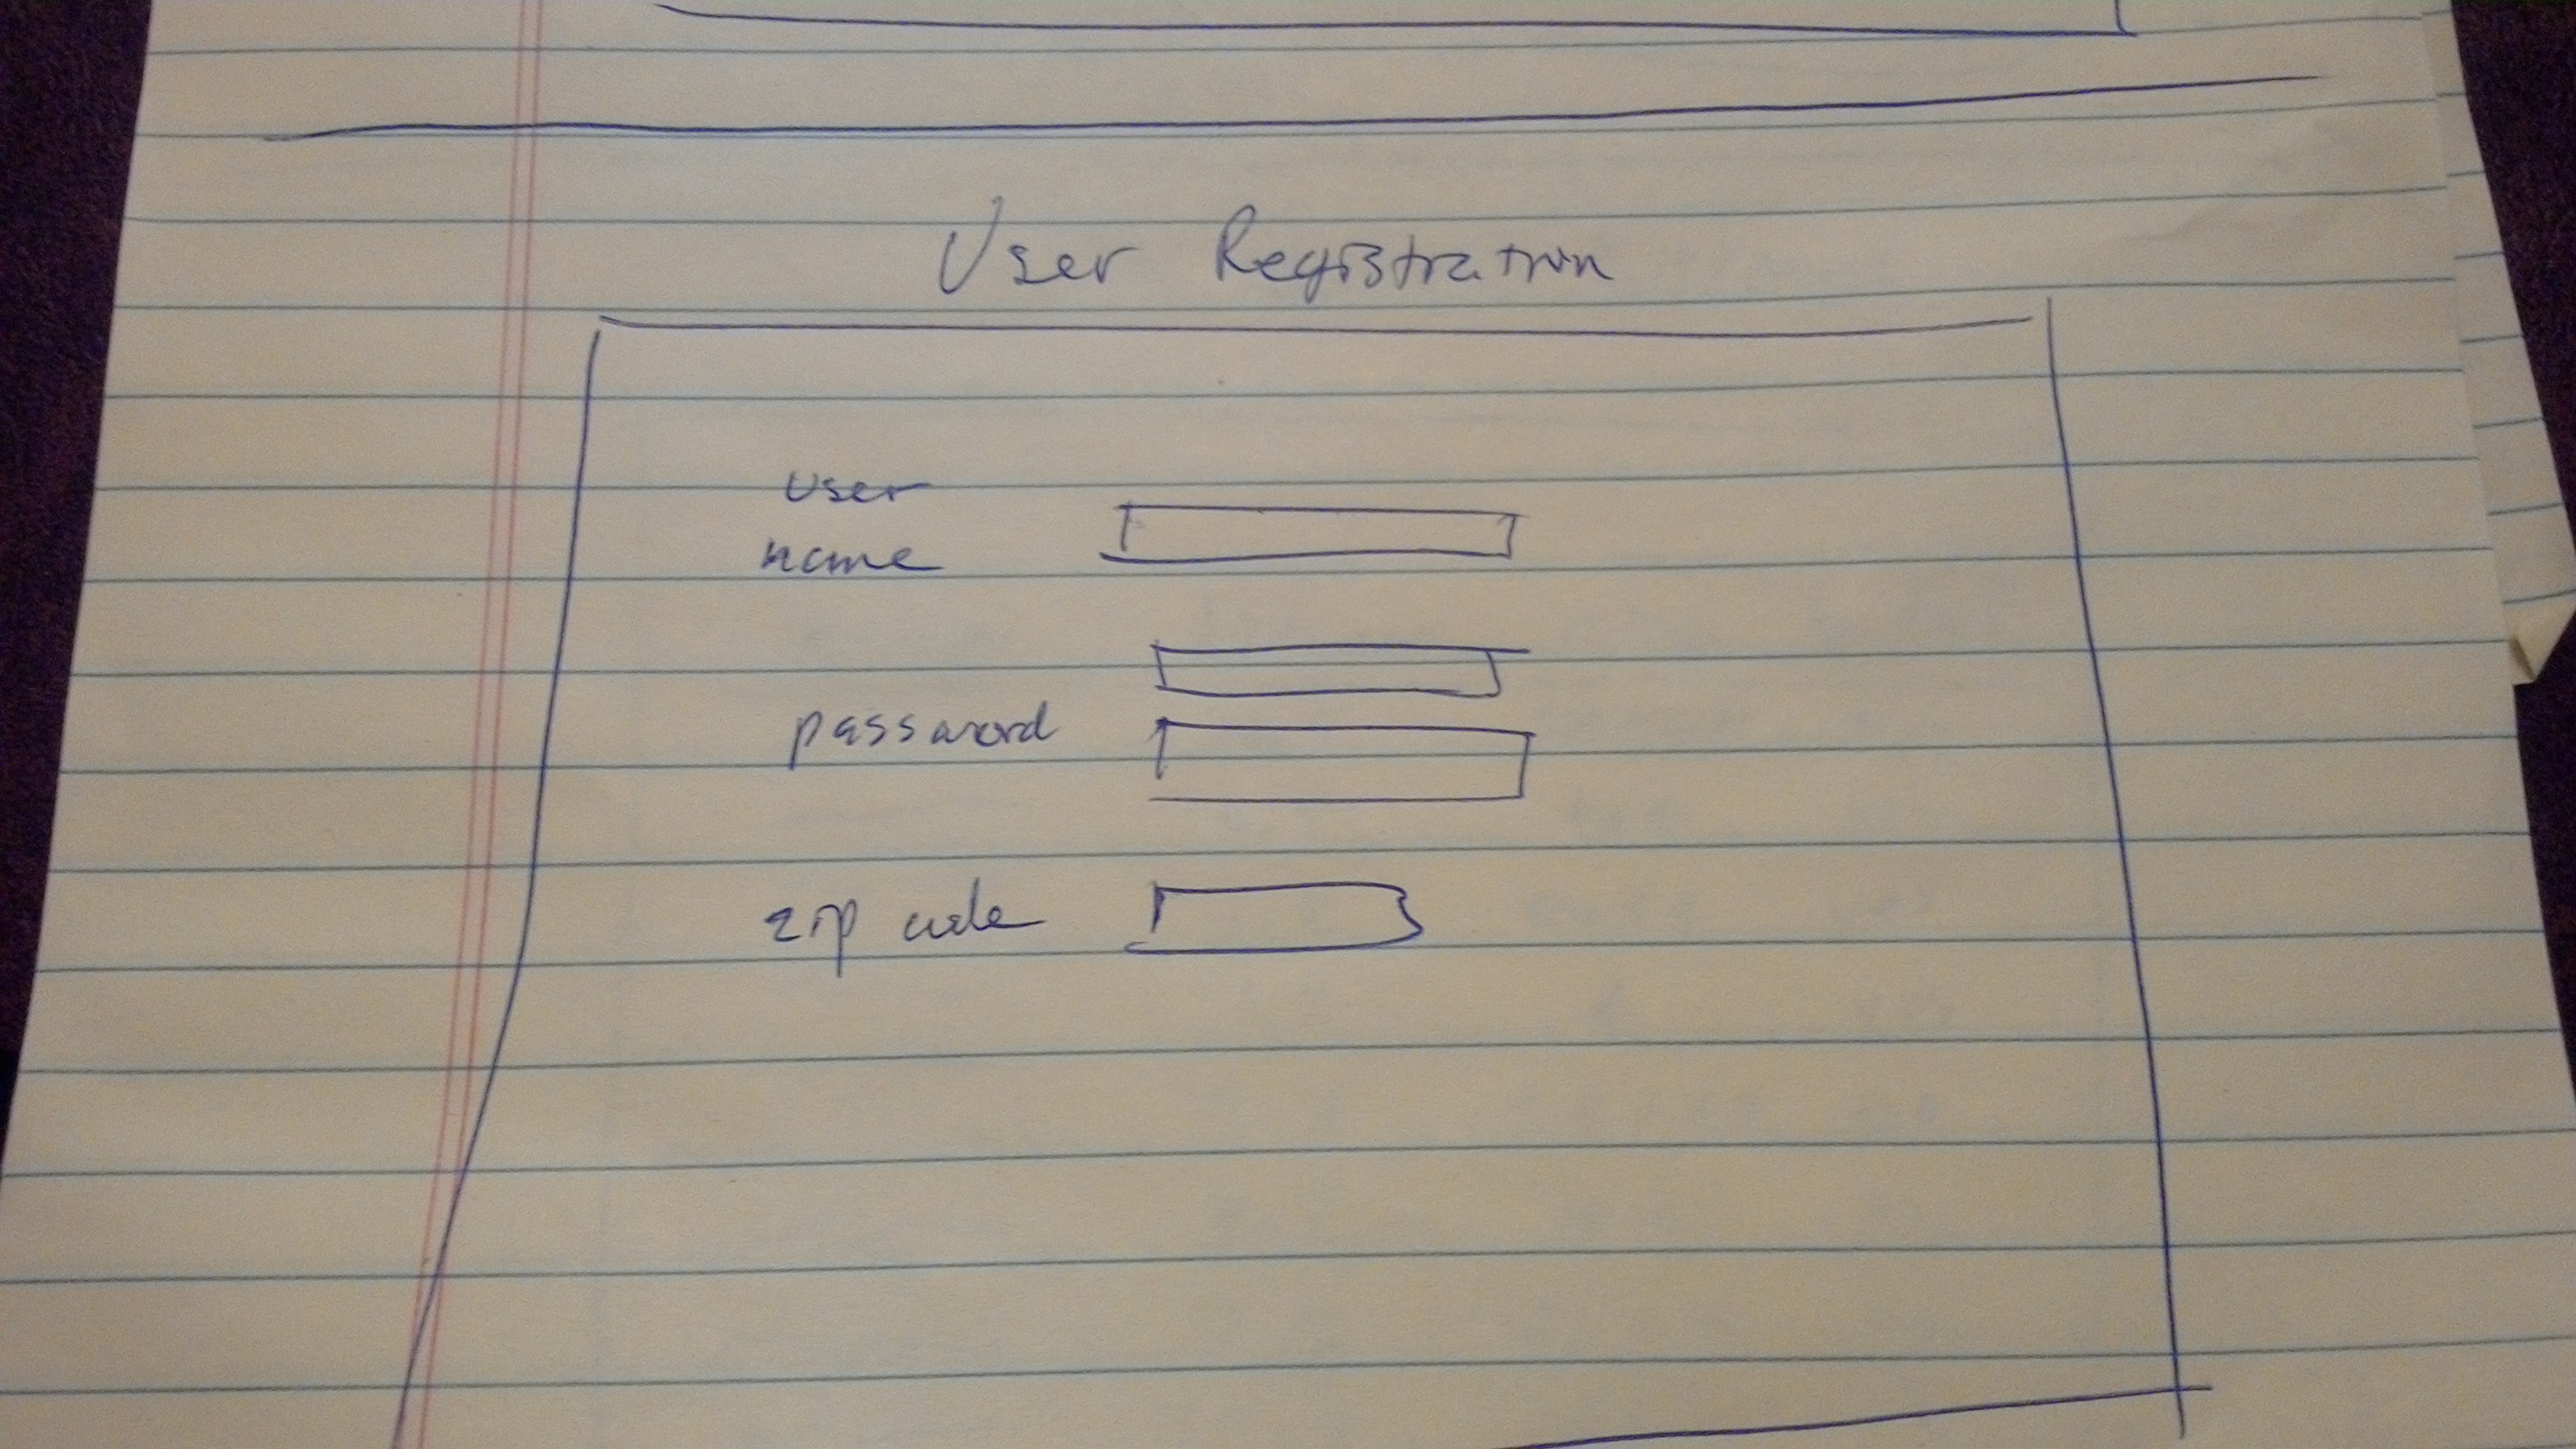 User Registration
user
name
password
zip code